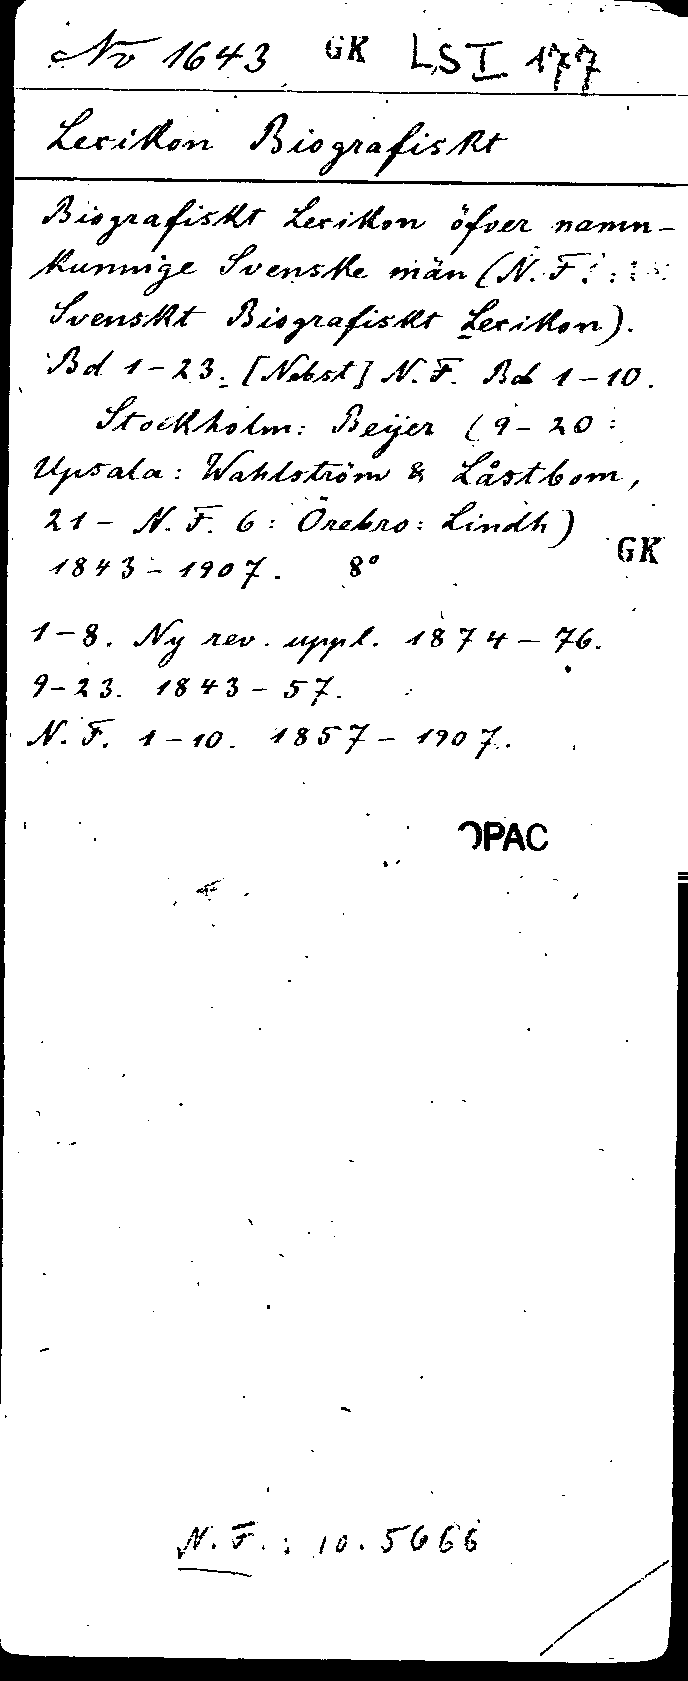 No 1643 GK LS I 177
Lexikon Biografiskt
Biografiskt Lexikon öfver namn-
kunnige Svenske män (N. F. :
Svenskt Biografiskt Lexikon).
Bd 1-23. [Nebst] N. F. Bd 1-10.
Stockholm: Beijer (9-20:
Upsala: Wahlström & Låstbom,
21- N. F. 6: Örebro: Lindh)
GK
1843-1907. 8°
1-8. Ny rev. uppl. 1874-76.
9-23. 1843-57.
N. F. 1-10. 1857-1907.
OPAC
N. F. : 10. 5666